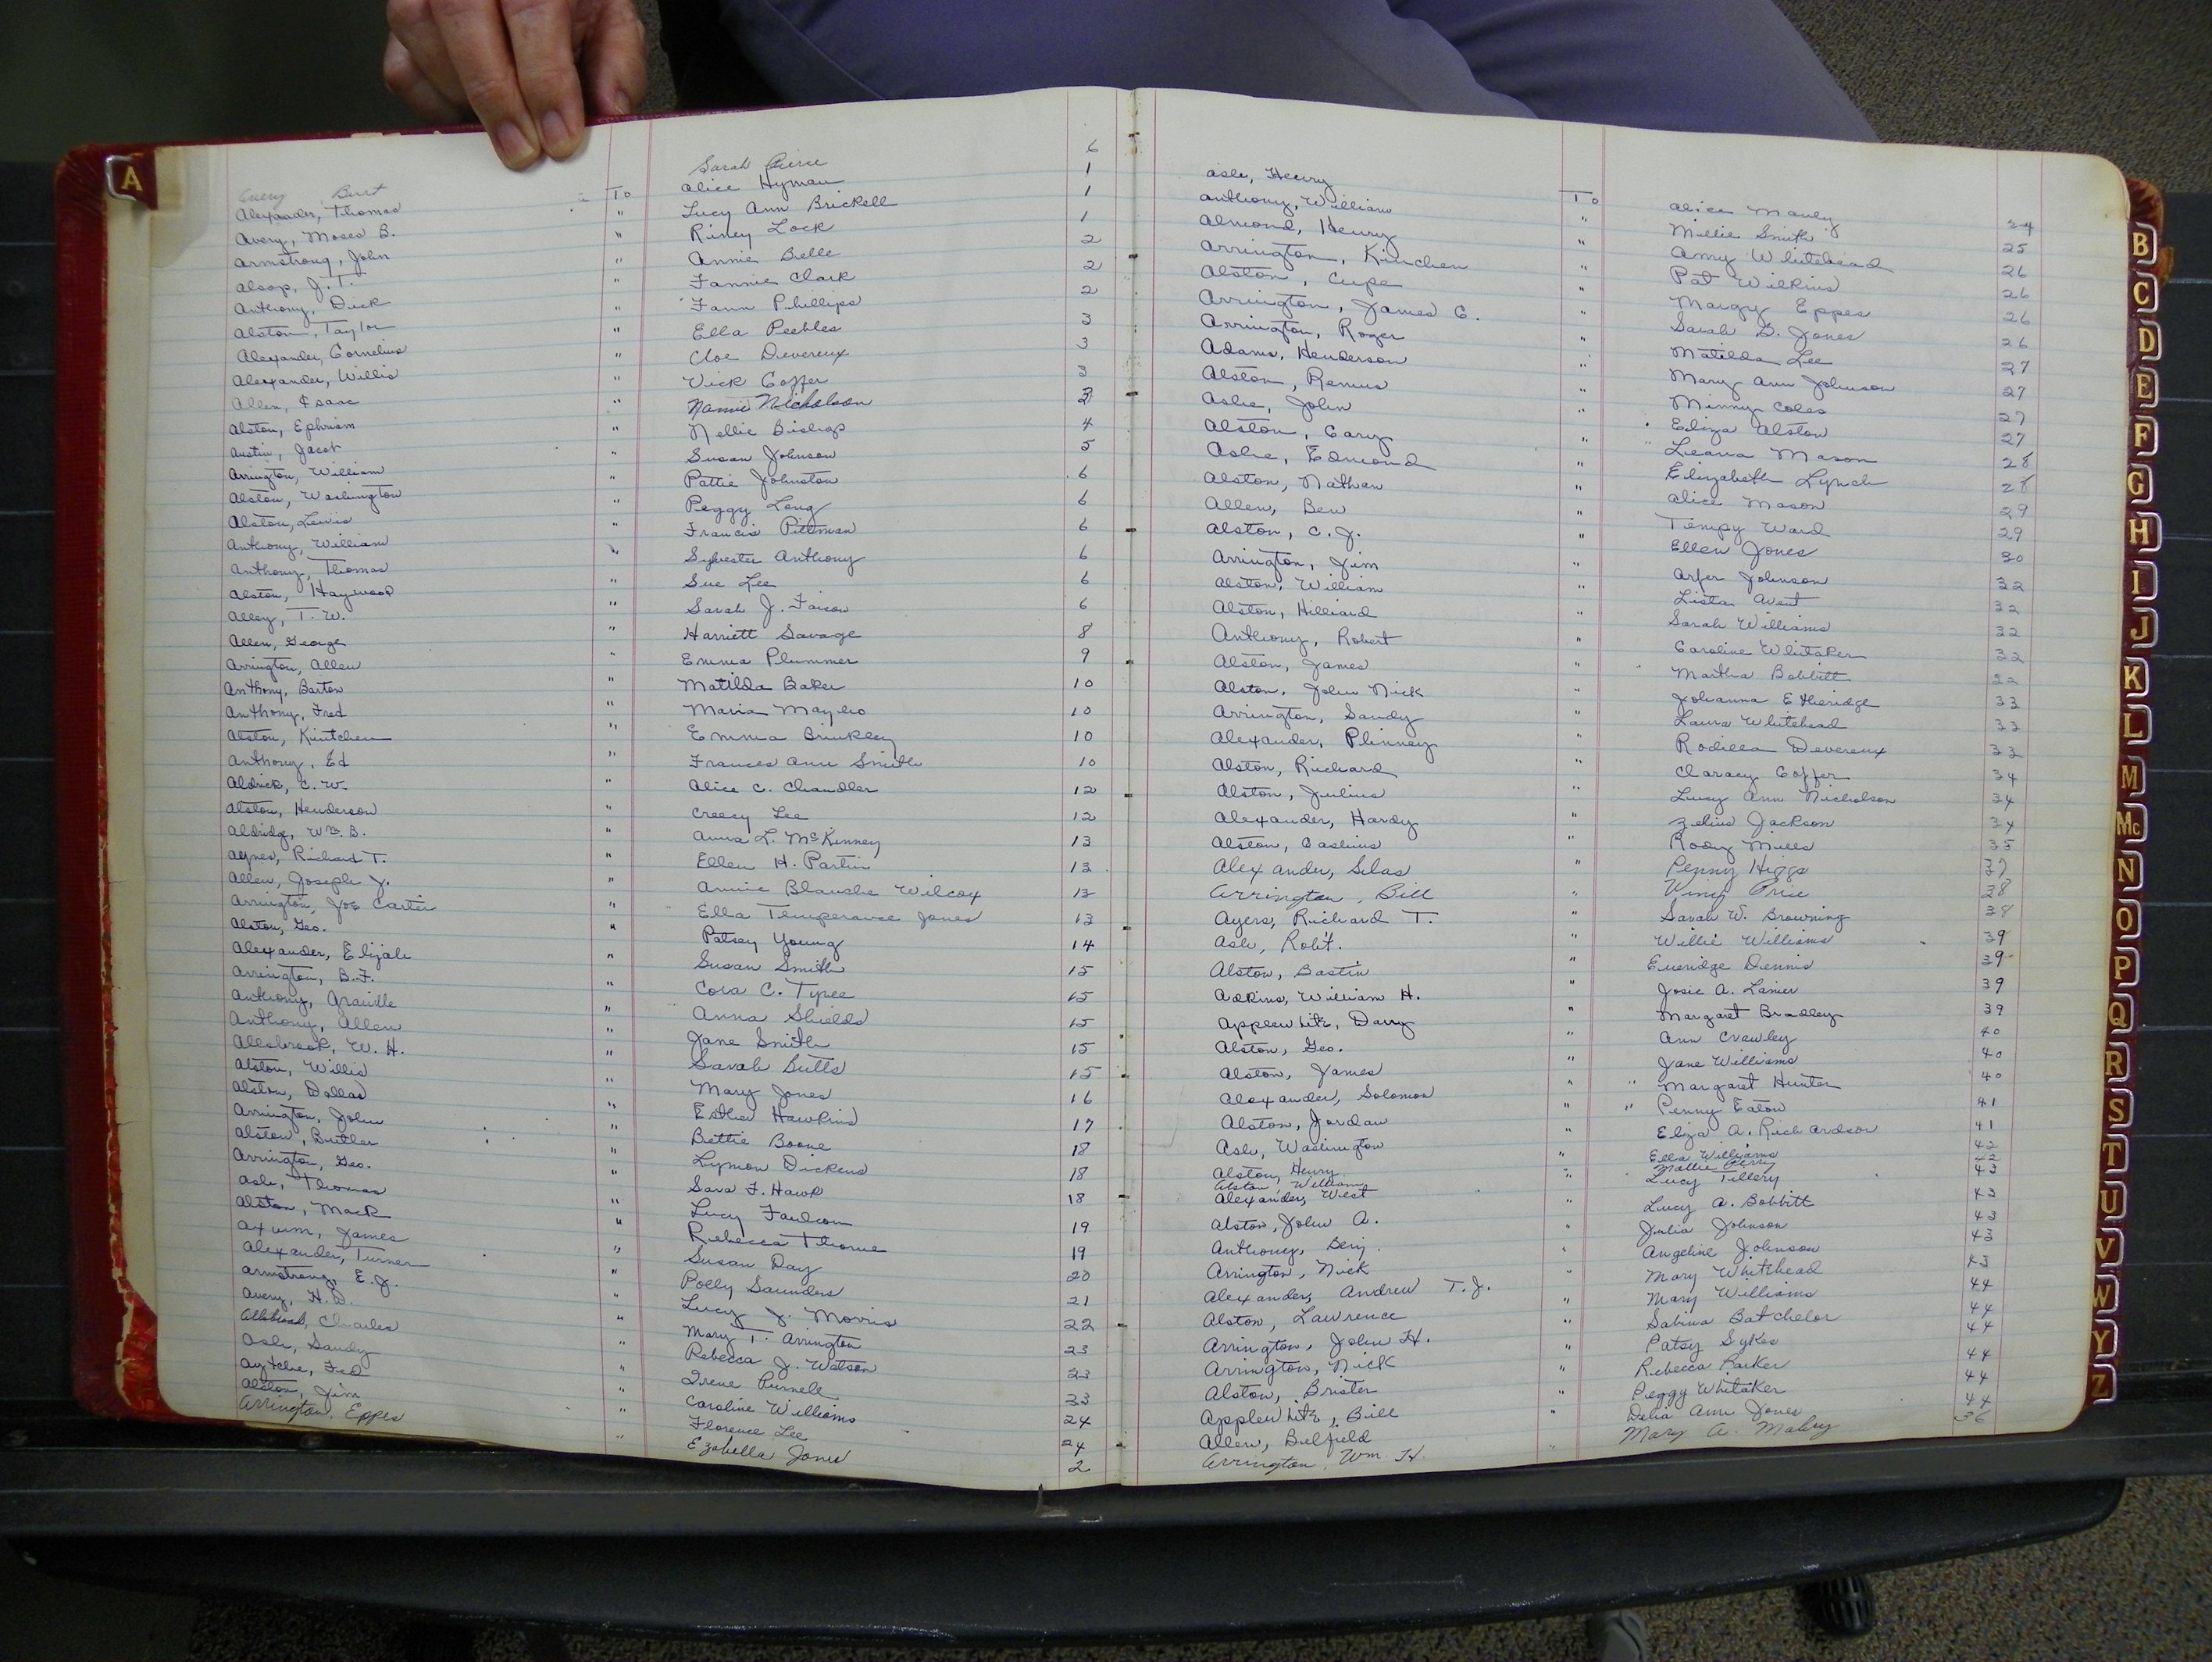 A
Avery, Burt Sarah Pierce 6
Alexander, Thomas To Alice Hyman 1
Avery, Moses B. " Lucy Ann Brickell 1
Armstrong, John " Riney Lock 1
Alsop, J. T. " Annie Belle 2
Anthony, Dick " Fannie Clark 2
Alston, Taylor " Fann Phillips 2
Alexander, Cornelius " Ella Peebles 3
Alexander, Willis " Cloe Devereux 3
Allen, Isaac " Vick Goffer 3
Alston, Ephriam " Nannie Nicholson 3
Austin, Jacob " Nellie Bishop 4
Arrington, William " Susan Johnson 5
Alston, Washington " Pattie Johnston 6
Alston, Lewis " Peggy Long 6
Anthony, William " Francis Pittman 6
Anthony, Thomas " Sylvester Anthony 6
Alston, Haywood " Sue Lee 6
Alley, T. W. " Sarah J. Faison 6
Allen, George " Harriett Savage 8
Arrington, Allen " Emma Plummer 9
Anthony, Barton " Matilda Baker 10
Anthony, Fred " Maria Mayho 10
Alston, Kintchen " Emma Brinkley 10
Anthony, Ed " Frances Ann Smith 10
Aldrick, C. W. " Alice C. Chandler 12
Alston, Henderson " Creecy Lee 12
Aldridge, Wm. B. " Anna L. McKinney 13
Ayres, Richard T. " Ellen H. Partin 13
Allen, Joseph J. " Annie Blanche Wilcox 13
Arrington, Joe Carter " Ella Temperance Jones 13
Alston, Geo. " Patsey Young 14
Alexander, Elijah " Susan Smith 15
Arrington, B. F. " Cora C. Tyree 15
Anthony, Granville " Anna Shields 15
Anthony, Allen " Jane Smith 15
Allsbrook, W. H. " Sarah Butts 15
Alston, Willis " Mary Jones 16
Alston, Dallas " Esther Hawkins 17
Arrington, John " Bettie Boone 18
Alston, Butler " Lymon Dickens 18
Arrington, Geo. " Sara F. Hawk 18
Ash, Thomas " Lucy Faulcon 19
Alston, Mack " Rebecca Thorne 19
Axum, James " Susan Day 20
Alexander, Turner " Polly Saunders 21
Armstrong, E. J. " Lucy J. Morris 22
Avery, H. D. " Mary T. Arrington 23
Allsbrook, Charles " Rebecca J. Watson 23
Ash, Sandy " Irene Purnell 23
Aytche, Fred " Caroline Williams 24
Alston, Jim " Florence Lee 24
Arrington, Eppes " Ezabella Jones 2
Ash, Henry To Alice Manly 24
Anthony, William " Millie Smith 25
Almond, Henry " Amy Whitehead 26
Arrington, Kinchen " Pat Wilkins 26
Alston, Cupe " Margy Eppes 26
Arrington, James C. " Sarah B. Jones 26
Arrington, Roger " Matilda Lee 27
Adams, Henderson " Mary Ann Johnson 27
Alston, Remus " Minny Coles 27
Ashe, John " Eliza Alston 27
Alston, Gary " Leana Mason 28
Ashe, Edmond " Elizabeth Lynch 28
Alston, Nathan " Alice Mason 29
Allen, Ben " Tempy Ward 29
Alston, C. J. " Ellen Jones 30
Arrington, Jim " Arfer Johnson 32
Alston, William " Lista Avent 32
Alston, Hilliard " Sarah Williams 32
Anthony, Robert " Caroline Whitaker 32
Alston, James " Martha Bobbitt 32
Alston, John Nick " Johanna Etheridge 33
Arrington, Sandy " Laura Whitehead 33
Alexander, Plinney " Rodilla Devereux 33
Alston, Richard " Claracy Goffer 34
Alston, Julius " Lucy Ann Nicholson 34
Alexander, Hardy " Zelius Jackson 34
Alston, Gaskins " Rody Mills 35
Alexander, Silas " Penny Higgs 37
Arrington, Bill " Winy Price 38
Ayers, Richard T. " Sarah W. Browning 38
Ash, Robt. " Willie Williams 39
Alston, Bastin " Eueridge Dennis 39
Adkins, William H. " Josie A. Lanier 39
Applewhite, Darry " Margaret Bradley 39
Alston, Geo. " Ann Crawley 40
Alston, James " Jane Williams 40
Alexander, Solomon " Margaret Hunter 40
Alston, Jordan " Penny Eaton 41
Ash, Washington " Eliza A. Richardson 41
Alston, Henry " Ella Williams 42
Alston, William Mattie Perry 42
Alexander, West " Lucy Tillery 43
Alston, John A. " Lucy A. Bobbitt 43
Anthony, Benj. " Julia Johnson 43
Arrington, Nick " Angeline Johnson 43
Alexander, Andrew T. J. " Mary Whitehead 43
Alston, Lawrence " Mary Williams 44
Arrington, John H. " Sabina Batchelor 44
Arrington, Nick " Patsy Sykes 44
Alston, Brister " Rebecca Parker 44
Applewhite, Bill " Peggy Whitaker 44
Allen, Belfield " Delia Ann Jones 44
Arrington, Wm. H. " Mary A. Mabry 36
B
C
D
E
F
G
H
I
J
K
L
M
Mc
N
O
P
Q
R
S
T
U
V
W
Y
Z